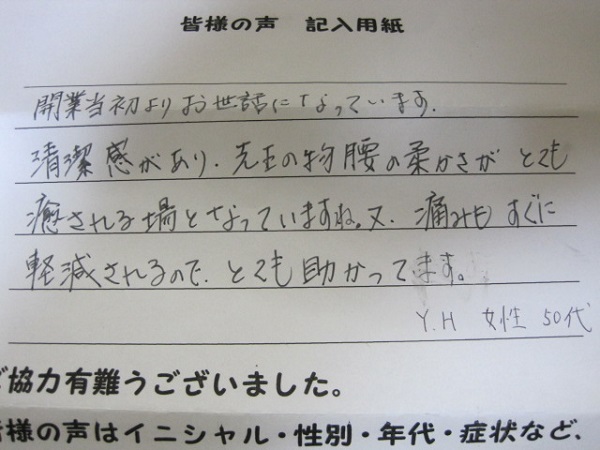 皆様の声 記入用紙
開業当初よりお世話になっています.
清潔感があり、先生の物腰の柔かさが とても
癒される場となっていますね。又、痛みも すぐに
軽減されるので、とても助かってます。
Y.H 女性 50代
ご協力有難うございました。
皆様の声はイニシャル・性別・年代・症状など、